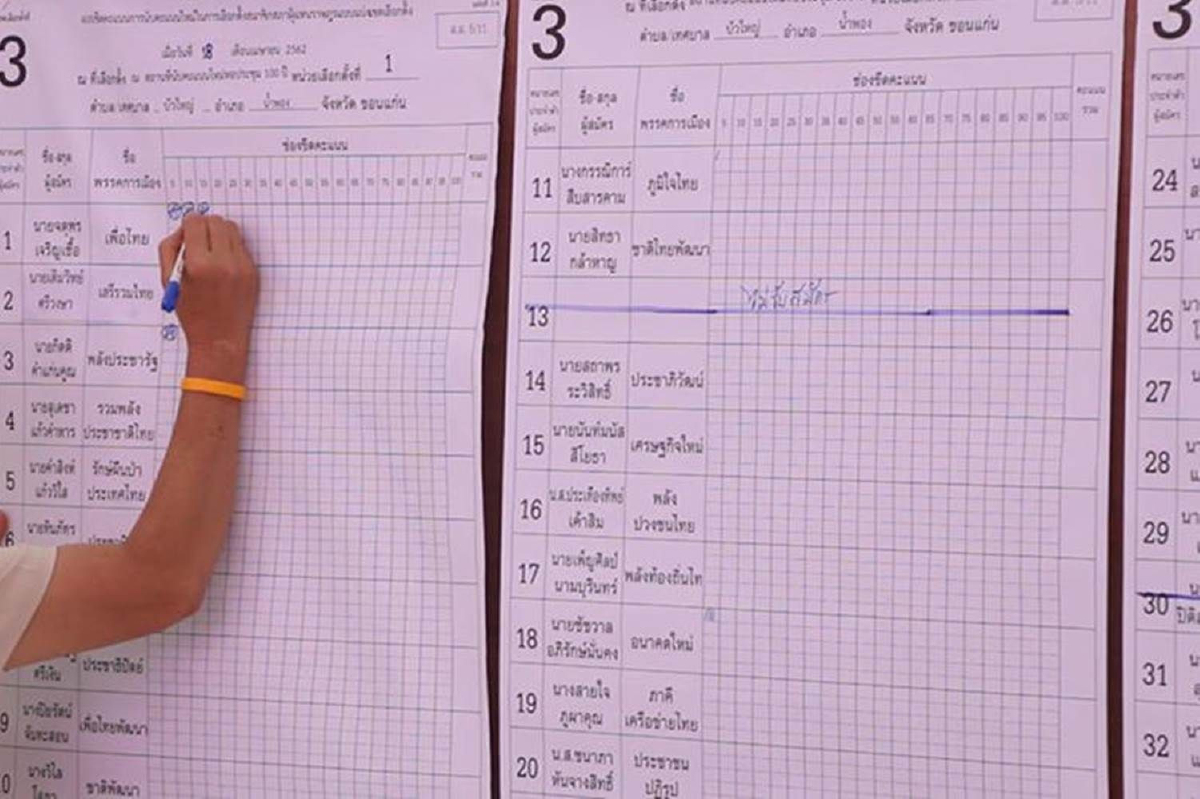 3
เมื่อวันที่ 18 เดือนเมษายน 2562
ณ ที่เลือกตั้ง ณ สถานที่นับคะแนนใหม่หอประชุม 100 ปี หน่วยเลือกตั้งที่ 1
ตำบล/เทศบาล บัวใหญ่ อำเภอ น้ำพอง จังหวัด ขอนแก่น
ชื่อ-สกุล ผู้สมัคร
ชื่อ พรรคการเมือง
ช่องขีดคะแนน
คะแนน รวม
5 10 15 20 25 30 35 40 45 50 55 60 65 70 75 80 85 90 95 100
1 นายจตุพร เจริญเชื้อ เพื่อไทย
2 นายเติมวิทย์ ศรีวงษา เสรีรวมไทย
3 นายกิตติ คำแก่นคูณ พลังประชารัฐ
4 นายสุเดชา แก้วคำหาร รวมพลัง ประชาชาติไทย
5 นายคำสิงห์ แก้ววิใส รักษ์ผืนป่า ประเทศไทย
6
ศรีเงิน ประชาธิปัตย์
9 นางปิยรัตน์ จันทะสอน เพื่อไทยพัฒนา
นางวิไล ชาติพัฒนา
3
ตำบล/เทศบาล บัวใหญ่ อำเภอ น้ำพอง จังหวัด ขอนแก่น
หมายเลข ประจำตัว ผู้สมัคร
ชื่อ-สกุล ผู้สมัคร
ชื่อ พรรคการเมือง
ช่องขีดคะแนน
คะแนน รวม
5 10 15 20 25 30 35 40 45 50 55 60 65 70 75 80 85 90 95 100
11 นางกรรณิการ์ สืบสารคาม ภูมิใจไทย
12 นายสิทธา กล้าหาญ ชาติไทยพัฒนา
13 ไม่รับสมัคร
14 นายสถาพร ระวิสิทธิ์ ประชาภิวัฒน์
15 นายนันท์มนัส สีโยธา เศรษฐกิจใหม่
16 น.ส.ประเทืองทิพย์ เค้าสิม พลัง ปวงชนไทย
17 นายเพ็ญศิลป์ นามบุรินทร์ พลังท้องถิ่นไท
18 นายชัชวาล อภิรักษ์มั่นคง อนาคตใหม่
19 นางสายใจ ภูผาคุณ ภาคี เครือข่ายไทย
20 น.ส.ชนาภา หันจางสิทธิ์ ประชาชน ปฏิรูป
3
24
25
26
27
28
29
30
31
32